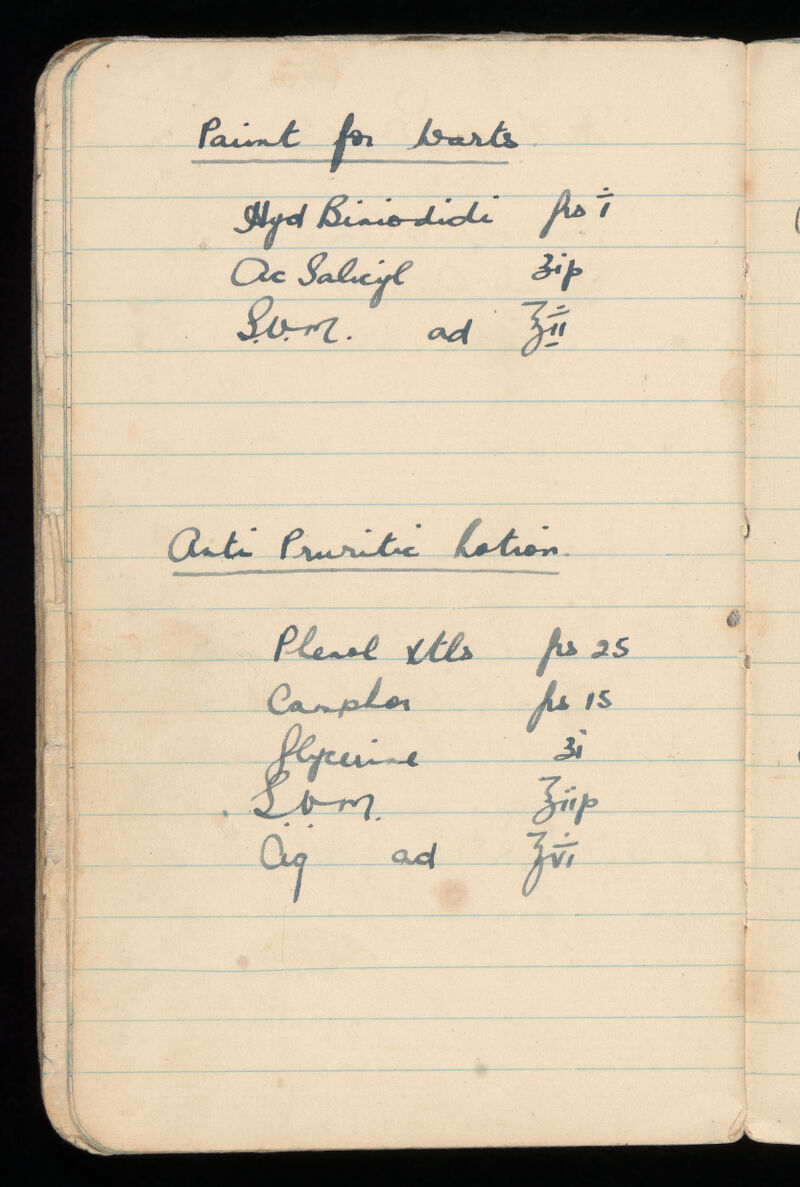 Paint for Warts
Hyd Biniodidi grs i
Ac Salicyl ʒiß
S.V.M. ad ℥ii
Anti Pruritic Lotion.
Phenol Xtls grs 25
Camphor grs 15
Glycerine ʒi
S.V.M. ℥iiß
Aq ad ℥vi